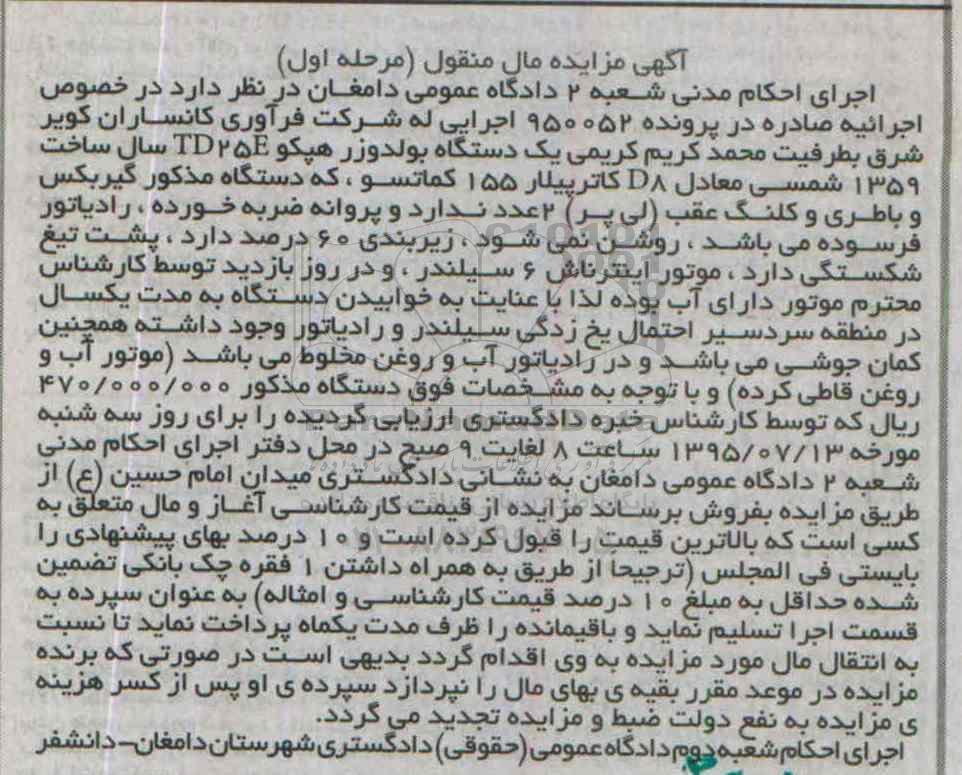 آگهی مزایده مال منقول (مرحله اول)
اجرای احکام مدنی شعبه ۲ دادگاه عمومی دامغان در نظر دارد در خصوص
اجرائیه صادره در پرونده ۹۵۰۰۵۲ اجرایی له شرکت فرآوری کانساران کویر
شرق بطرفیت محمد کریم کریمی یک دستگاه بولدوزر هپکو TD۲۵E سال ساخت
۱۳۵۹ شمسی معادل D۸ کاترپیلار ۱۵۵ کماتسو ، که دستگاه مذکور گیربکس
و باطری و کلنگ عقب (لی پر) ۲عدد ندارد و پروانه ضربه خورده ، رادیاتور
فرسوده می باشد ، روشن نمی شود ، زیربندی ۶۰ درصد دارد ، پشت تیغ
شکستگی دارد ، موتور اینترناش ۶ سیلندر ، و در روز بازدید توسط کارشناس
محترم موتور دارای آب بوده لذا با عنایت به خوابیدن دستگاه به مدت یکسال
در منطقه سردسیر احتمال یخ زدگی سیلندر و رادیاتور وجود داشته همچنین
کمان جوشی می باشد و در رادیاتور آب و روغن مخلوط می باشد (موتور آب و
روغن قاطی کرده) و با توجه به مشخصات فوق دستگاه مذکور ۴۷۰/۰۰۰/۰۰۰
ریال که توسط کارشناس خبره دادگستری ارزیابی گردیده را برای روز سه شنبه
مورخه ۱۳۹۵/۰۷/۱۳ ساعت ۸ لغایت ۹ صبح در محل دفتر اجرای احکام مدنی
شعبه ۲ دادگاه عمومی دامغان به نشانی دادگستری میدان امام حسین (ع) از
طریق مزایده بفروش برساند مزایده از قیمت کارشناسی آغاز و مال متعلق به
کسی است که بالاترین قیمت را قبول کرده است و ۱۰ درصد بهای پیشنهادی را
بایستی فی المجلس (ترجیحا از طریق به همراه داشتن ۱ فقره چک بانکی تضمین
شده حداقل به مبلغ ۱۰ درصد قیمت کارشناسی و امثاله) به عنوان سپرده به
قسمت اجرا تسلیم نماید و باقیمانده را ظرف مدت یکماه پرداخت نماید تا نسبت
به انتقال مال مورد مزایده به وی اقدام گردد بدیهی است در صورتی که برنده
مزایده در موعد مقرر بقیه ی بهای مال را نپردازد سپرده ی او پس از کسر هزینه
ی مزایده به نفع دولت ضبط و مزایده تجدید می گردد.
اجرای احکام شعبه دوم دادگاه عمومی (حقوقی) دادگستری شهرستان دامغان-دانشفر